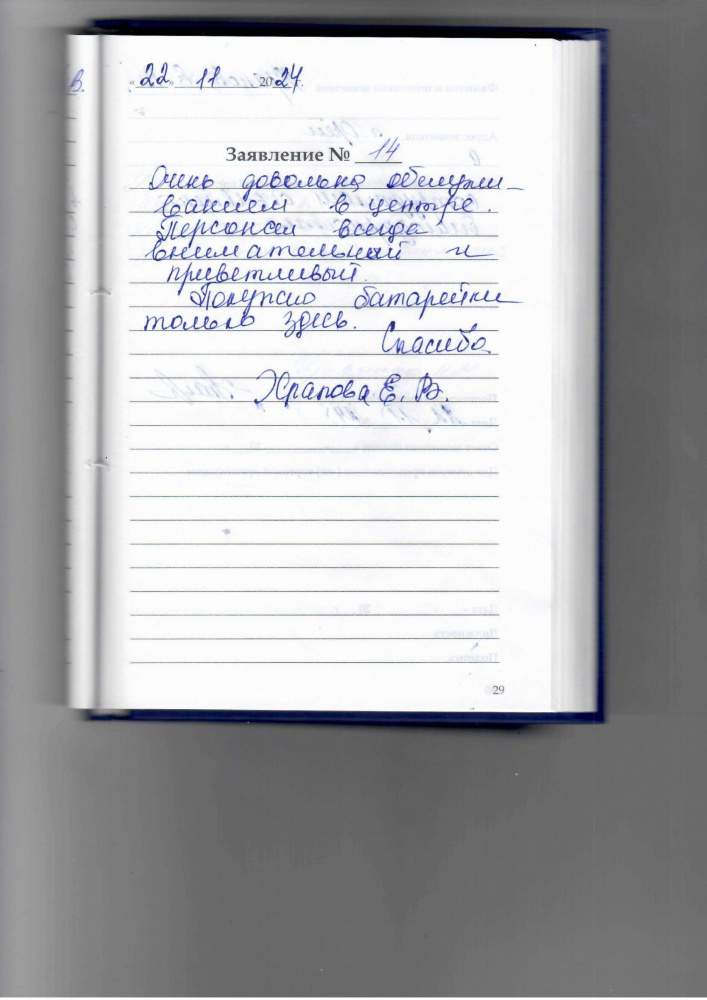 В.
22 11 2024
Заявление № 14
Очень довольна обслужи-
ванием в центре.
Персонал всегда
внимательный и
приветливый.
Покупаю батарейки
только здесь.
Спасибо.
Храпова Е. В.
29